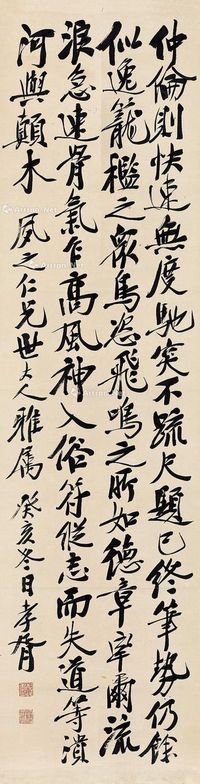 仲倫則快速無度馳突不疏尺題已終筆勢仍餘
似逸籠檻之眾鳥恣飛鳴之所如德章卒爾流
浪急速骨氣乍高風神入俗符從志而失道等潰
河與顛木 夙之仁兄世大人雅属 癸亥冬日孝胥